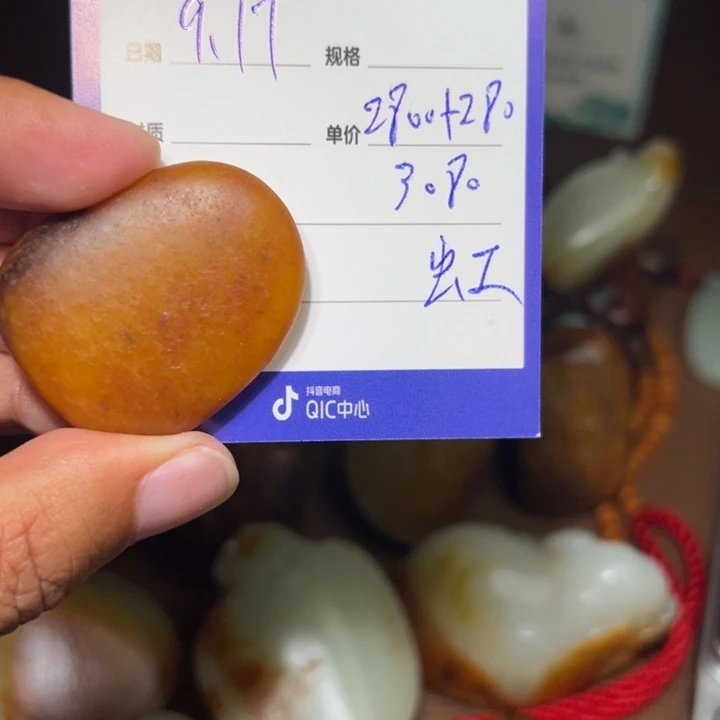 9.17
总额 规格
质 单价 2800+280
3080
出工
抖音电商
QIC中心